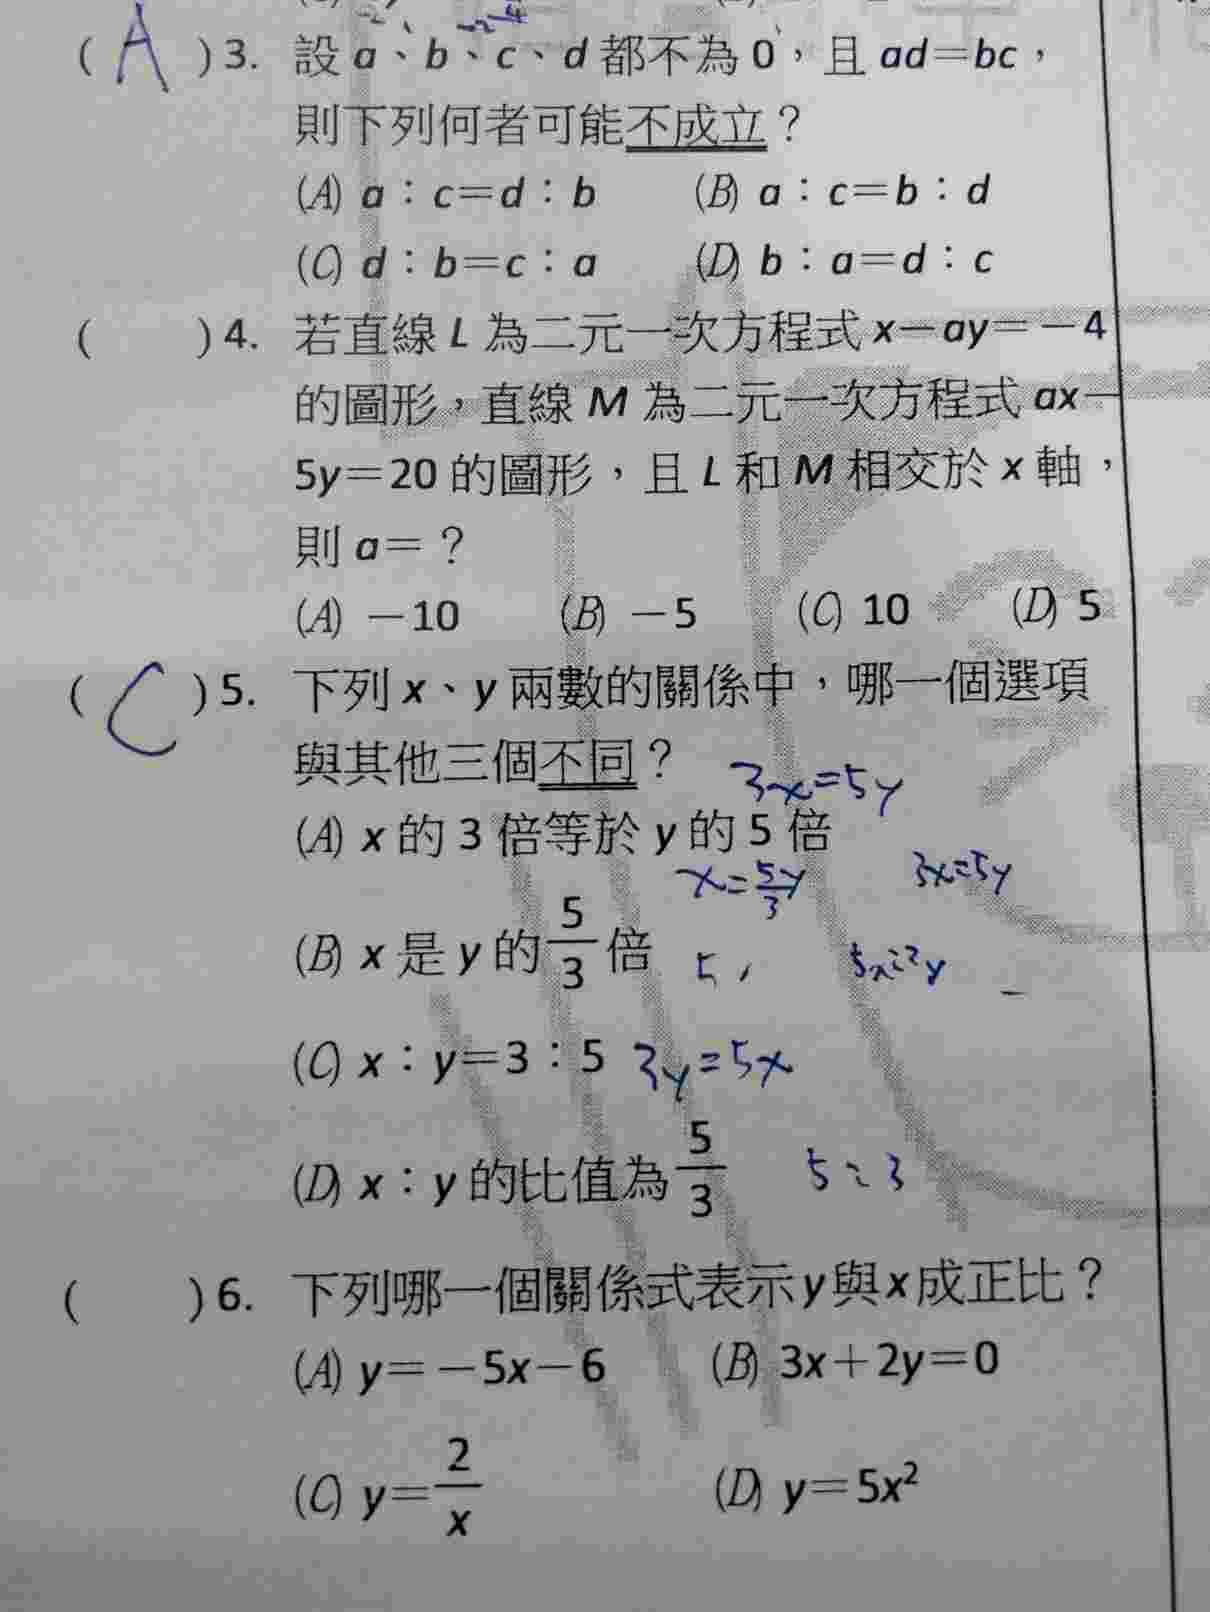 -2 -2-4
( A ) 3. 設 a、b、c、d 都不為 0，且 ad=bc，
則下列何者可能不成立？
(A) a：c=d：b (B) a：c=b：d
(C) d：b=c：a (D) b：a=d：c
( ) 4. 若直線 L 為二元一次方程式 x－ay=－4
的圖形，直線 M 為二元一次方程式 ax－
5y=20 的圖形，且 L 和 M 相交於 x 軸，
則 a=？
(A) －10 (B) －5 (C) 10 (D) 5
( C ) 5. 下列 x、y 兩數的關係中，哪一個選項
與其他三個不同？ 3x=5y
(A) x 的 3 倍等於 y 的 5 倍
x=5y/3 3x=5y
(B) x 是 y 的 5/3 倍 5
(C) x：y=3：5 3y=5x
(D) x：y 的比值為 5/3 5：3
( ) 6. 下列哪一個關係式表示 y 與 x 成正比？
(A) y=－5x－6 (B) 3x＋2y=0
(C) y=2/x (D) y=5x²